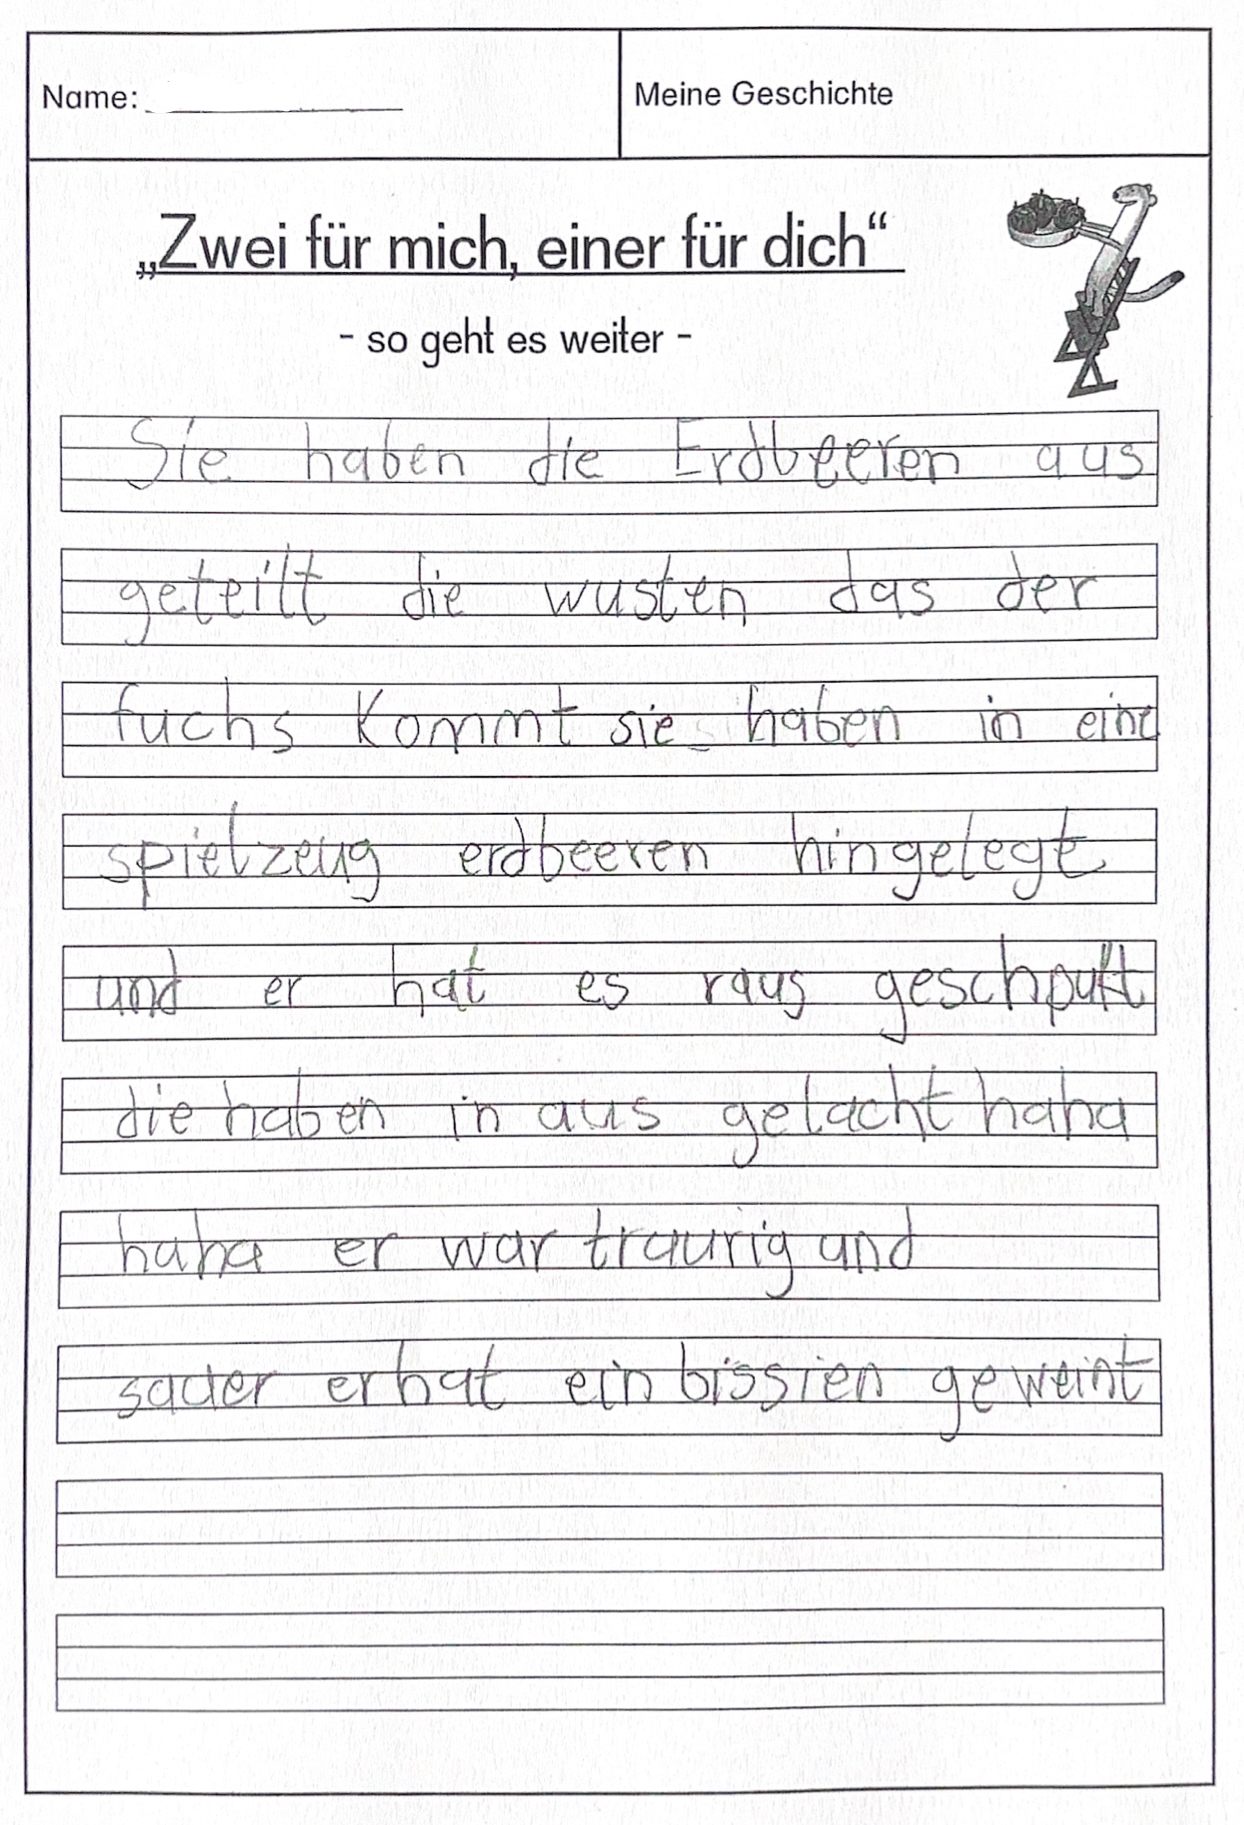 Name:
Meine Geschichte
„Zwei für mich, einer für dich“
- so geht es weiter -
Sie haben die Erdbeeren aus
geteilt die wusten das der
fuchs kommt sie haben in eine
spielzeug erdbeeren hingelegt
und er hat es raus geschpukt
die haben in aus gelacht haha
haha er war traurig und
sauer er hat ein bissien geweint